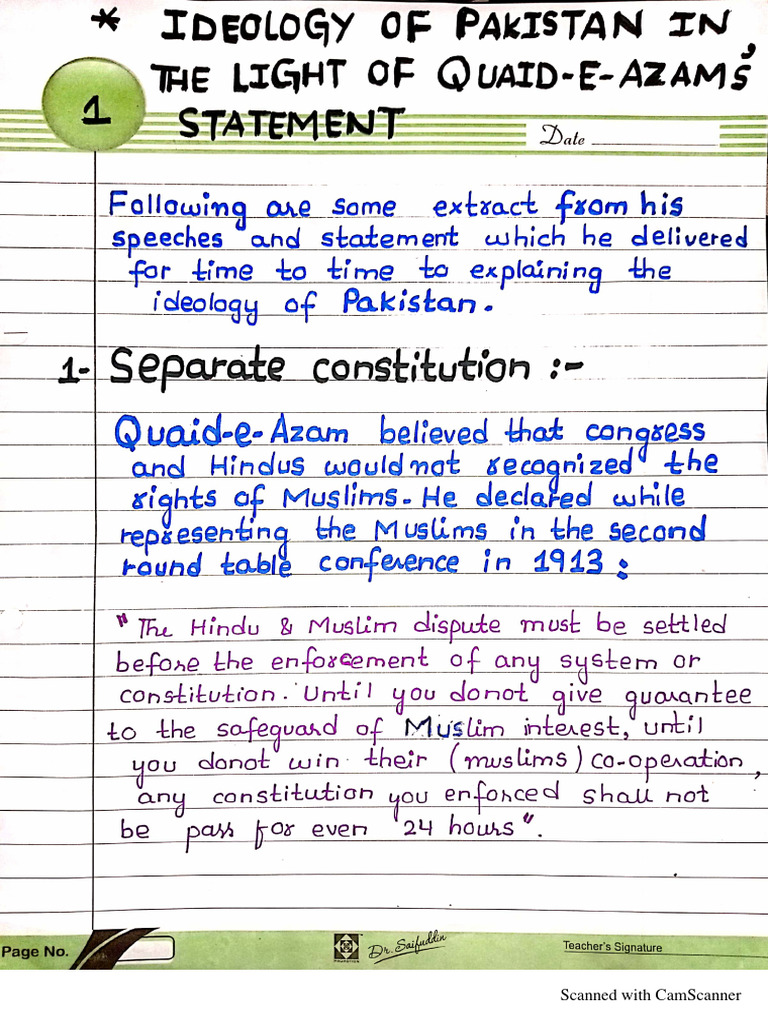 * IDEOLOGY OF PAKISTAN IN
THE LIGHT OF QUAID-E-AZAM'S
1
STATEMENT
Date
Following are some extract from his
speeches and statement which he delivered
for time to time to explaining the
ideology of Pakistan.
1- Separate constitution :-
Quaid-e-Azam believed that congress
and Hindus would not recognized the
rights of Muslims. He declared while
representing the Muslims in the second
round table conference in 1913 :
"The Hindu & Muslim dispute must be settled
before the enforcement of any system or
constitution. Until you donot give guarantee
to the safeguard of Muslim interest, until
you donot win their (muslims) co-operation,
any constitution you enforced shall not
be pass for even 24 hours".
Page No.
Dr. Saifuddin
Teacher's Signature
Scanned with CamScanner